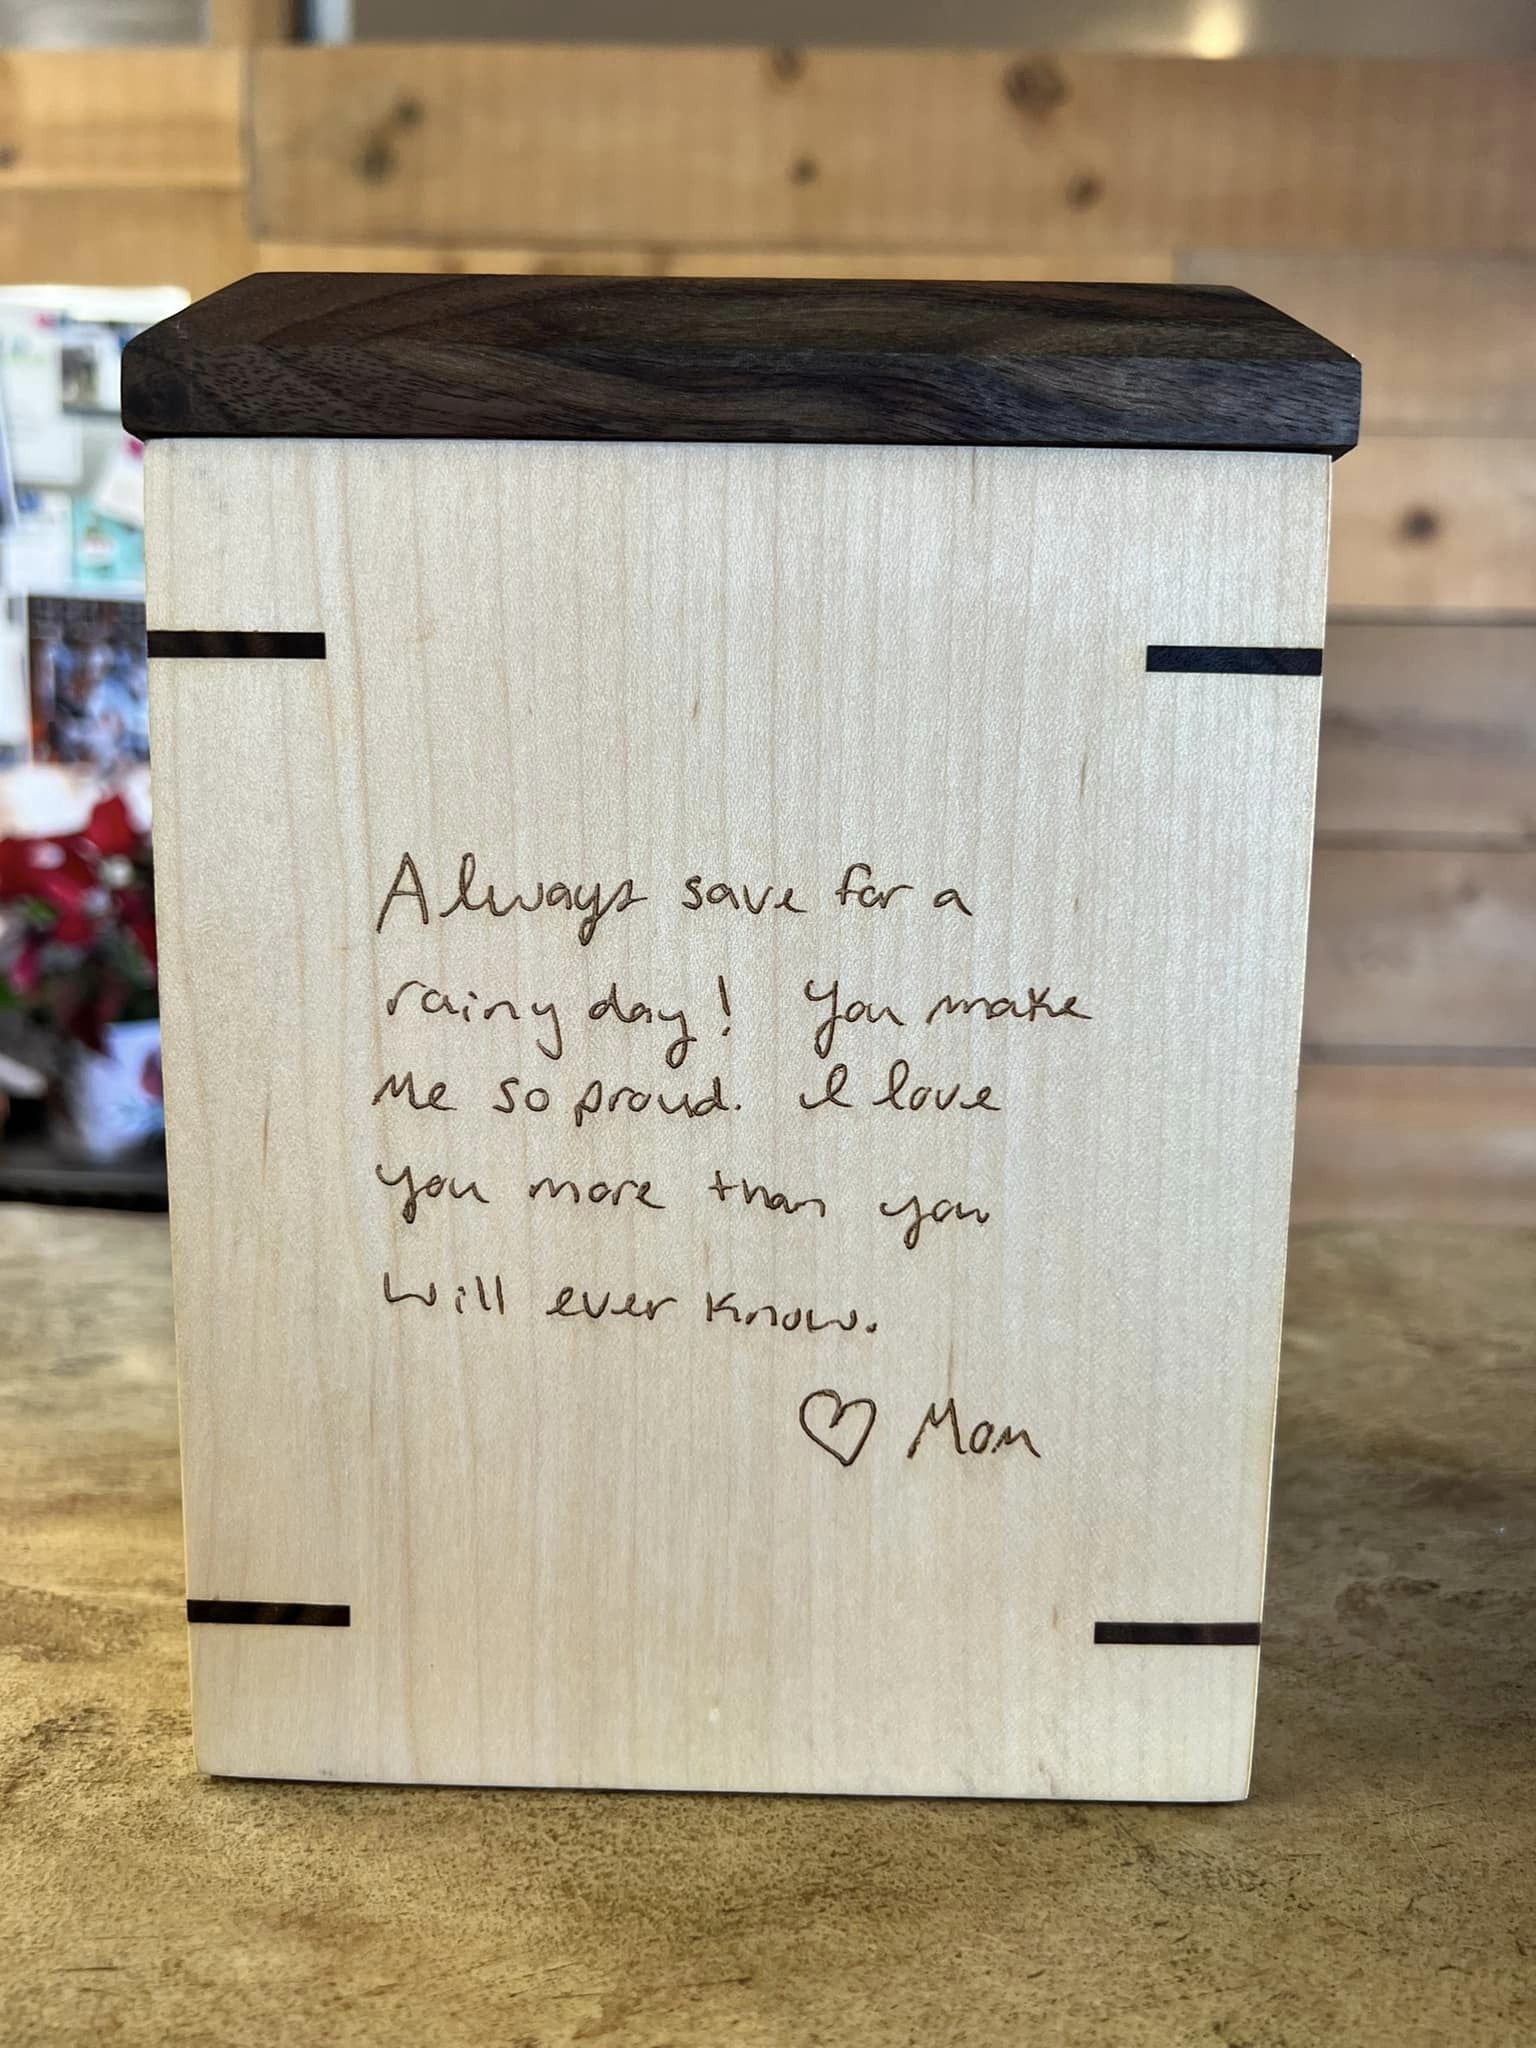 Always save for a
rainy day! You make
me so proud. I love
you more than you
will ever know.
♡ Mom